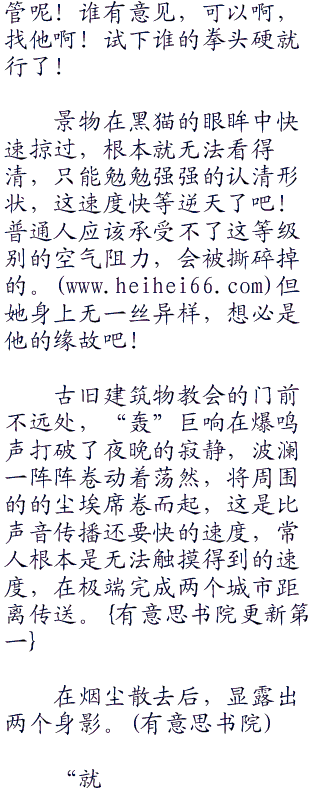 管呢！谁有意见，可以啊，
找他啊！试下谁的拳头硬就
行了！
景物在黑猫的眼眸中快
速掠过，根本就无法看得
清，只能勉勉强强的认清形
状，这速度快等逆天了吧！
普通人应该承受不了这等级
别的空气阻力，会被撕碎掉
的。(www.heihei66.com)但
她身上无一丝异样，想必是
他的缘故吧！
古旧建筑物教会的门前
不远处，“轰”巨响在爆鸣
声打破了夜晚的寂静，波澜
一阵阵卷动着荡然，将周围
的的尘埃席卷而起，这是比
声音传播还要快的速度，常
人根本是无法触摸得到的速
度，在极端完成两个城市距
离传送。{有意思书院更新第
一}
在烟尘散去后，显露出
两个身影。(有意思书院)
“就